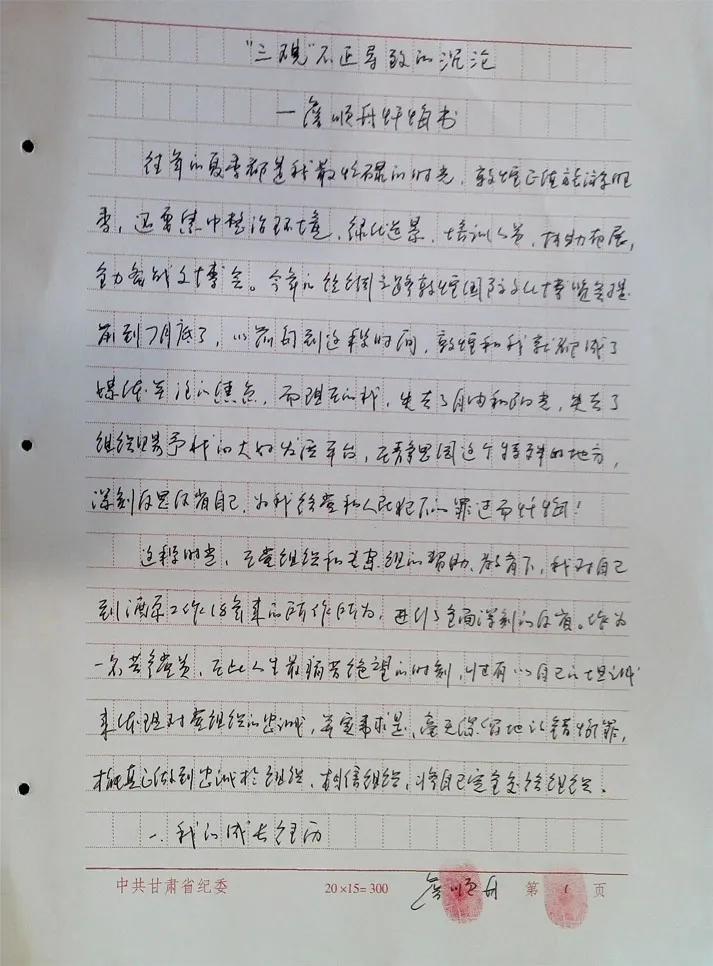 “三观”不正导致的沉沦
—詹顺舟忏悔书
往年的夏季都是我最忙碌的时光，敦煌正值旅游旺
季，还要集中整治环境，绿化造景，培训人员，协助布展，
全力备战文博会。今年的丝绸之路敦煌国际文化博览会提
前到7月底了，以前每到这段时间，敦煌和我就都成了
媒体关注的焦点，而现在的我，失去了自由和阳光，失去了
组织赐予我的大好发活平台，在静思园这个特殊的地方，
深刻反思反省自己，为我给党和人民犯下的罪过而忏悔！
这段时光，在党组织和专案组的帮助、教育下，我对自己
到酒泉工作18年来的所作所为，进行了全面深刻的反省。作为
一名共产党员，在此人生最痛苦绝望的时刻，只有以自己的坦诚
来体现对党组织的忠诚，实事求是、毫无保留地认错悔罪，
才能真正做到忠诚于组织、相信组织，将自己完全交给组织。
一、我的成长经历
中共甘肃省纪委 20×15=300 詹顺舟 第 1 页